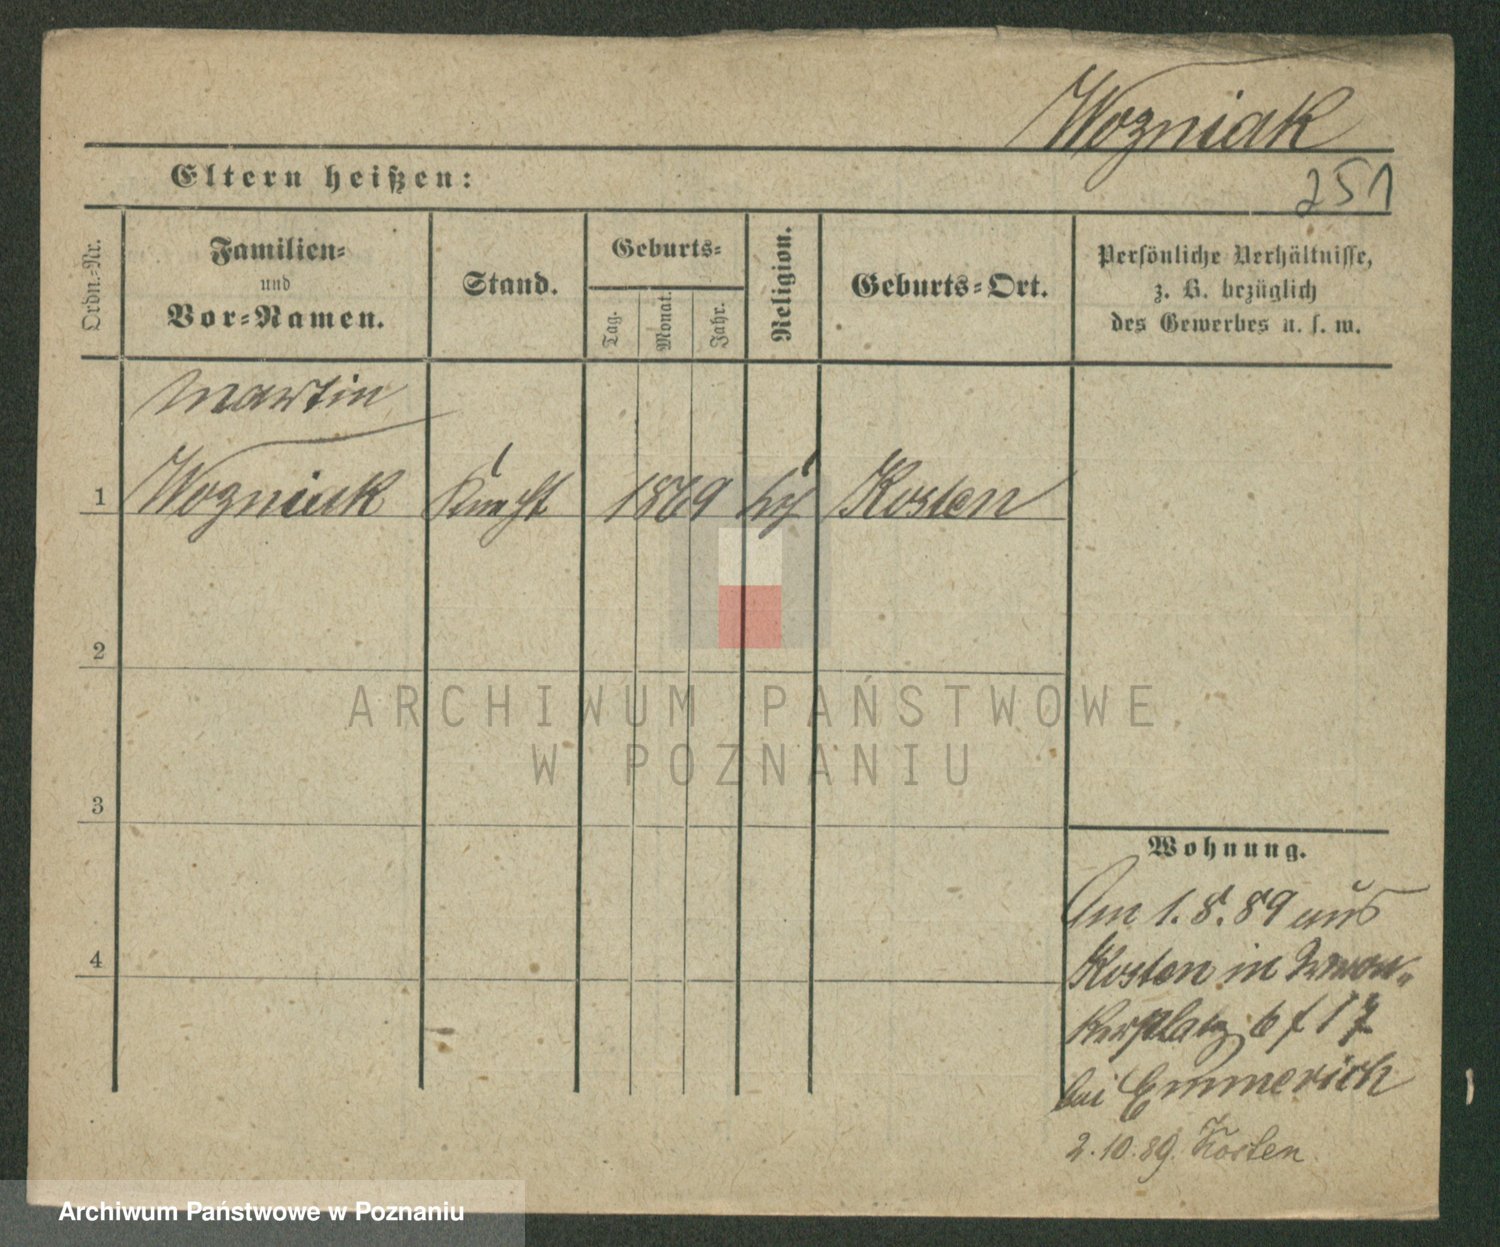 Wozniak
251
Eltern heißen:
Ordn.-Nr.
Familien-
und
Vor-Namen.
Stand.
Geburts-
Tag.
Monat.
Jahr.
Religion.
Geburts-Ort.
Persönliche Verhältnisse,
z. B. bezüglich
des Gewerbes u. s. w.
Martin
1 Wozniak Knecht 1869 Kosten
2
3
4
Wohnung.
Am 1.8.89 aus
Kosten in
6 f 17
bei Emmerich
2.10.89. Kosten.
ARCHIWUM PAŃSTWOWE
W POZNANIU
Archiwum Państwowe w Poznaniu